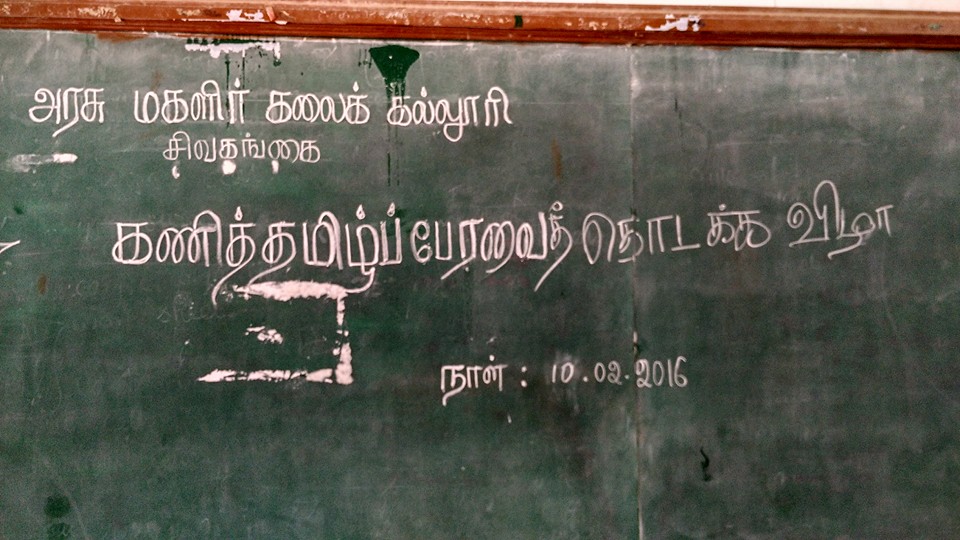 அரசு மகளிர் கலைக் கல்லூரி
சிவகங்கை
கணித்தமிழ்ப் பேரவைத் தொடக்க விழா
நாள் : 10.02.2016